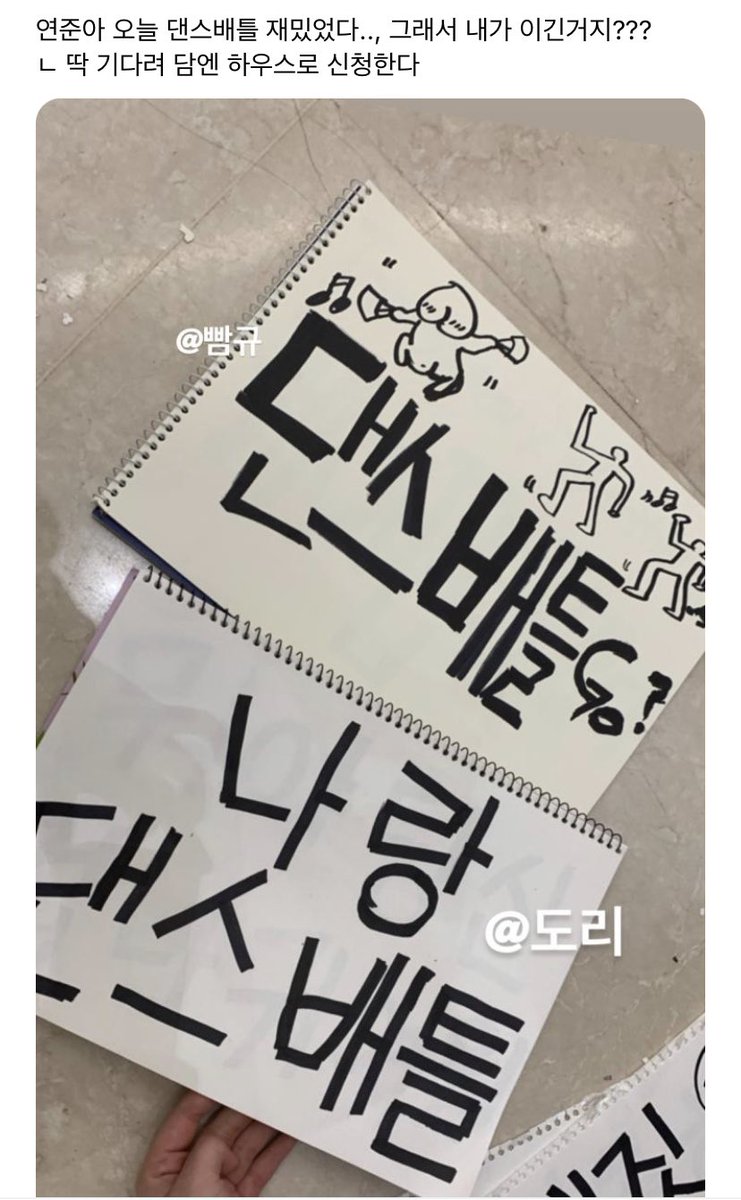 연준아 오늘 댄스배틀 재밌었다.., 그래서 내가 이긴거지???
ㄴ 딱 기다려 담엔 하우스로 신청한다
@빰규
댄스배틀 GO?
나랑
댄스배틀
@도리